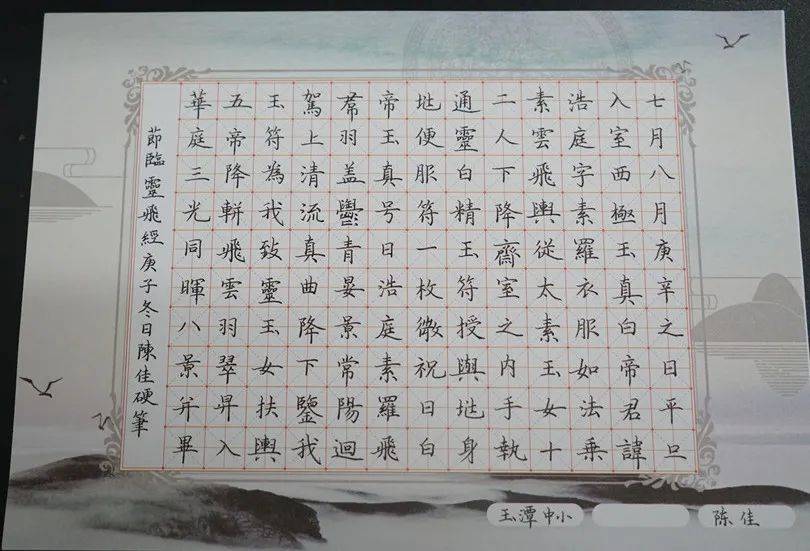 七月八月庚辛之日平旦
入室西極玉真白帝君諱
浩庭字素羅衣服如法乗
素雲飛輿從太素玉女十
二人下降齋室之内手執
通靈白精玉符授與㘴身
㘴便服符一枚微祝日白
帝玉真号日浩庭素羅飛
帬羽盖鬱青晏景常陽迴
駕上清流真曲降下鑒我
玉符為我致靈玉女扶輿
五帝降軿飛雲羽翠昇入
華庭三光同暉八景幷畢
節臨靈飛經庚子冬日陳佳硬筆
玉潭中小
陈佳